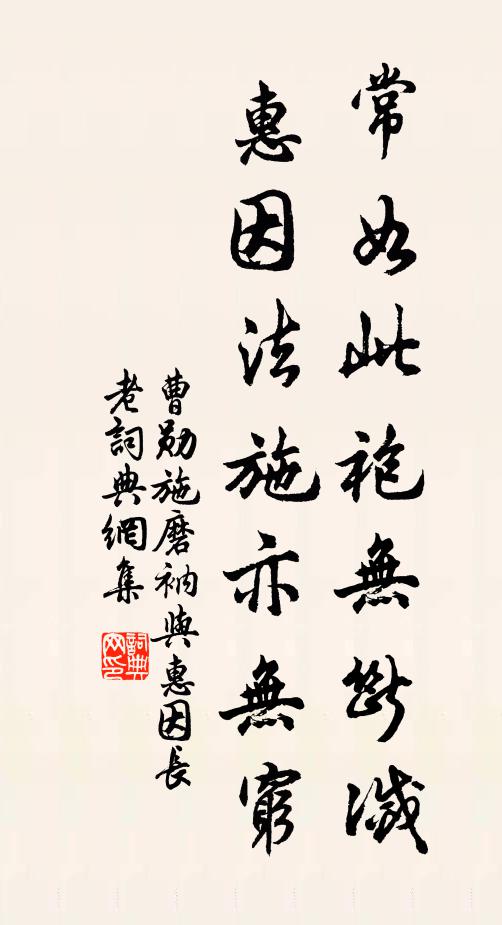 常如此袍無斷滅
惠因法施亦無窮
曹勛施磨衲與惠因長
老詞典網集
詞典網印